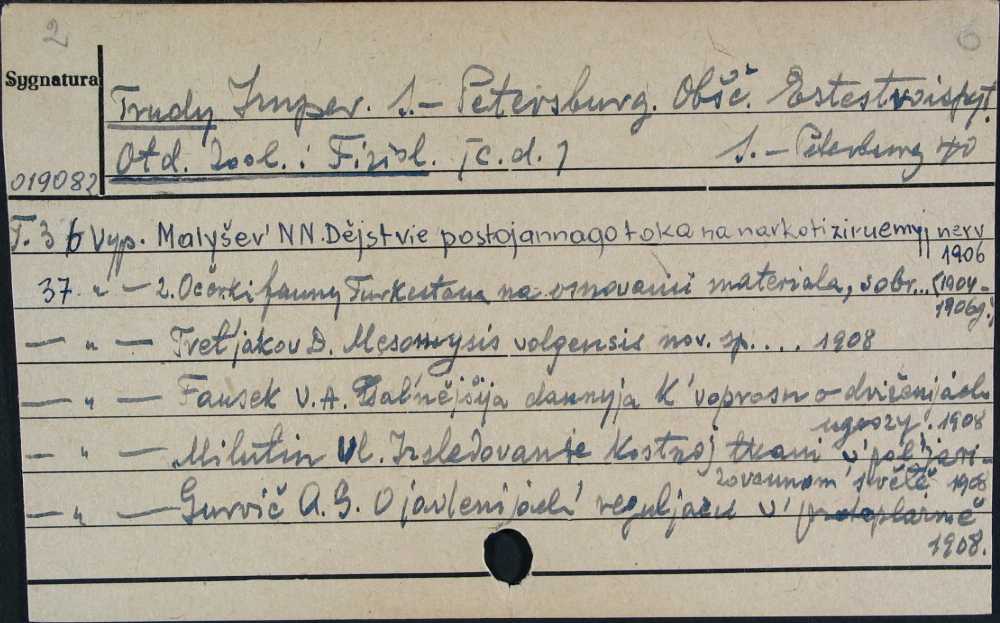 2 6
Sygnatura
Trudy Imper. S.- Petersburg. Obšč. Estestvoispyt.
Otd. Zool. i Fizioł. [c.d.] S.-Petersburg 40
019082
T. 36 Vyp. Malyšev' N N. Dějstvie postojannago toka na narkotiziruemyj nerv
1906
37 " — 2. Očerki fauny Turkestana na osnovanii materiala, sobr... (1904-
1906g.)
— " — Tret'jakov D. Mesomysis volgensis nov. sp. . . . 1908
— " — Fausek V. A. Dal'nějšija dannyja k' voprosu o dviženijach
1908
— " — Milutin Vl. Izsledovanie kostnoj tkani v' poljari-
zovannom' světě 1908
— " — Gurvič A. G. O javlenijach' reguljacii v' protoplazmě
1908.